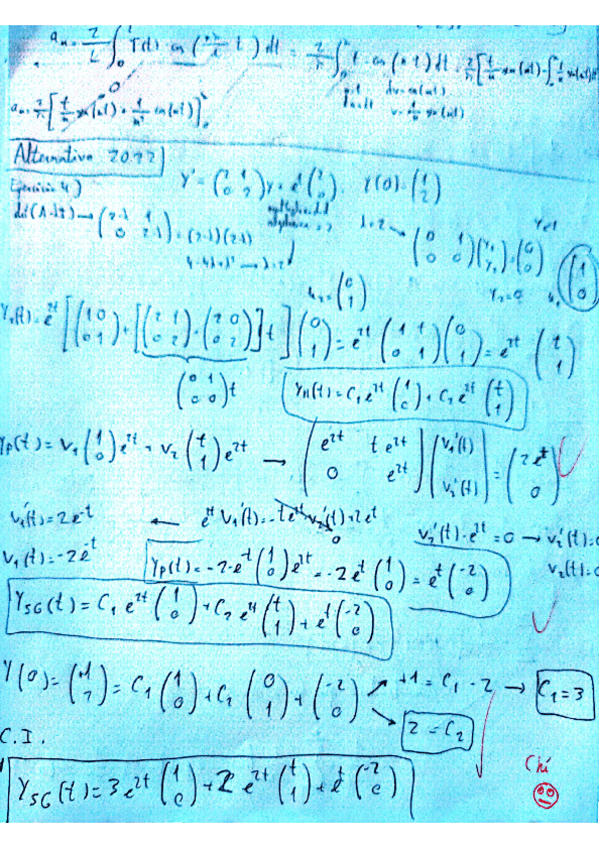 a_n = 2/L ∫_0 T(t) cos( t) dt = 2/π ∫_0 t · cos(nt) dt = 2/π [t/n sen(nt) - ∫ 1/n sen(nt) dt
dv = cos(nt)
v = 1/n sen(nt)
a_n = 2/π [t/n sen(nt) + 1/n² cos(nt)]
Alternativa 20.22
Ejercicio 4) Y' = (2 1; 0 2) Y + e^t (2; 0) , Y(0) = (1; 2)
det(A-λI) → (2-λ 1; 0 2-λ) = (2-λ)(2-λ) λ=2 → (0 1; 0 0)(y_1; y_2) = (0; 0) (1; 0)
4-4λ+λ² → λ=2 y_2=0
(0; 1)
Y_2(t) = e^{2t} [(1 0; 0 1) + [(2 1; 0 2) - (2 0; 0 2)] t ] (0; 1) = e^{2t} (1 t; 0 1)(0; 1) = e^{2t} (t; 1)
(0 1; 0 0) t Y_H(t) = C_1 e^{2t} (1; 0) + C_2 e^{2t} (t; 1)
Y_P(t) = V_1 (1; 0) e^{2t} + V_2 (t; 1) e^{2t} → (e^{2t} t e^{2t}; 0 e^{2t}) (V_1'(t); V_2'(t)) = (2e^t; 0)
V_1'(t) = 2e^{-t} ← e^{2t} V_1'(t) = -te^{2t} V_2'(t) + 2e^t V_2'(t)·e^{2t} = 0 → V_2'(t) =
0
V_1(t) = -2e^{-t} Y_P(t) = -2·e^{-t} (1; 0) e^{2t} = -2e^t (1; 0) = e^t (-2; 0) V_2(t) =
Y_SG(t) = C_1 e^{2t} (1; 0) + C_2 e^{2t} (t; 1) + e^t (-2; 0)
Y(0) = (+1; 2) = C_1 (1; 0) + C_2 (0; 1) + (-2; 0) +1 = C_1 - 2 → C_1 = 3
2 = C_2
C.I.
Y_SG(t) = 3e^{2t} (1; 0) + 2e^{2t} (t; 1) + e^t (-2; 0)
Chi